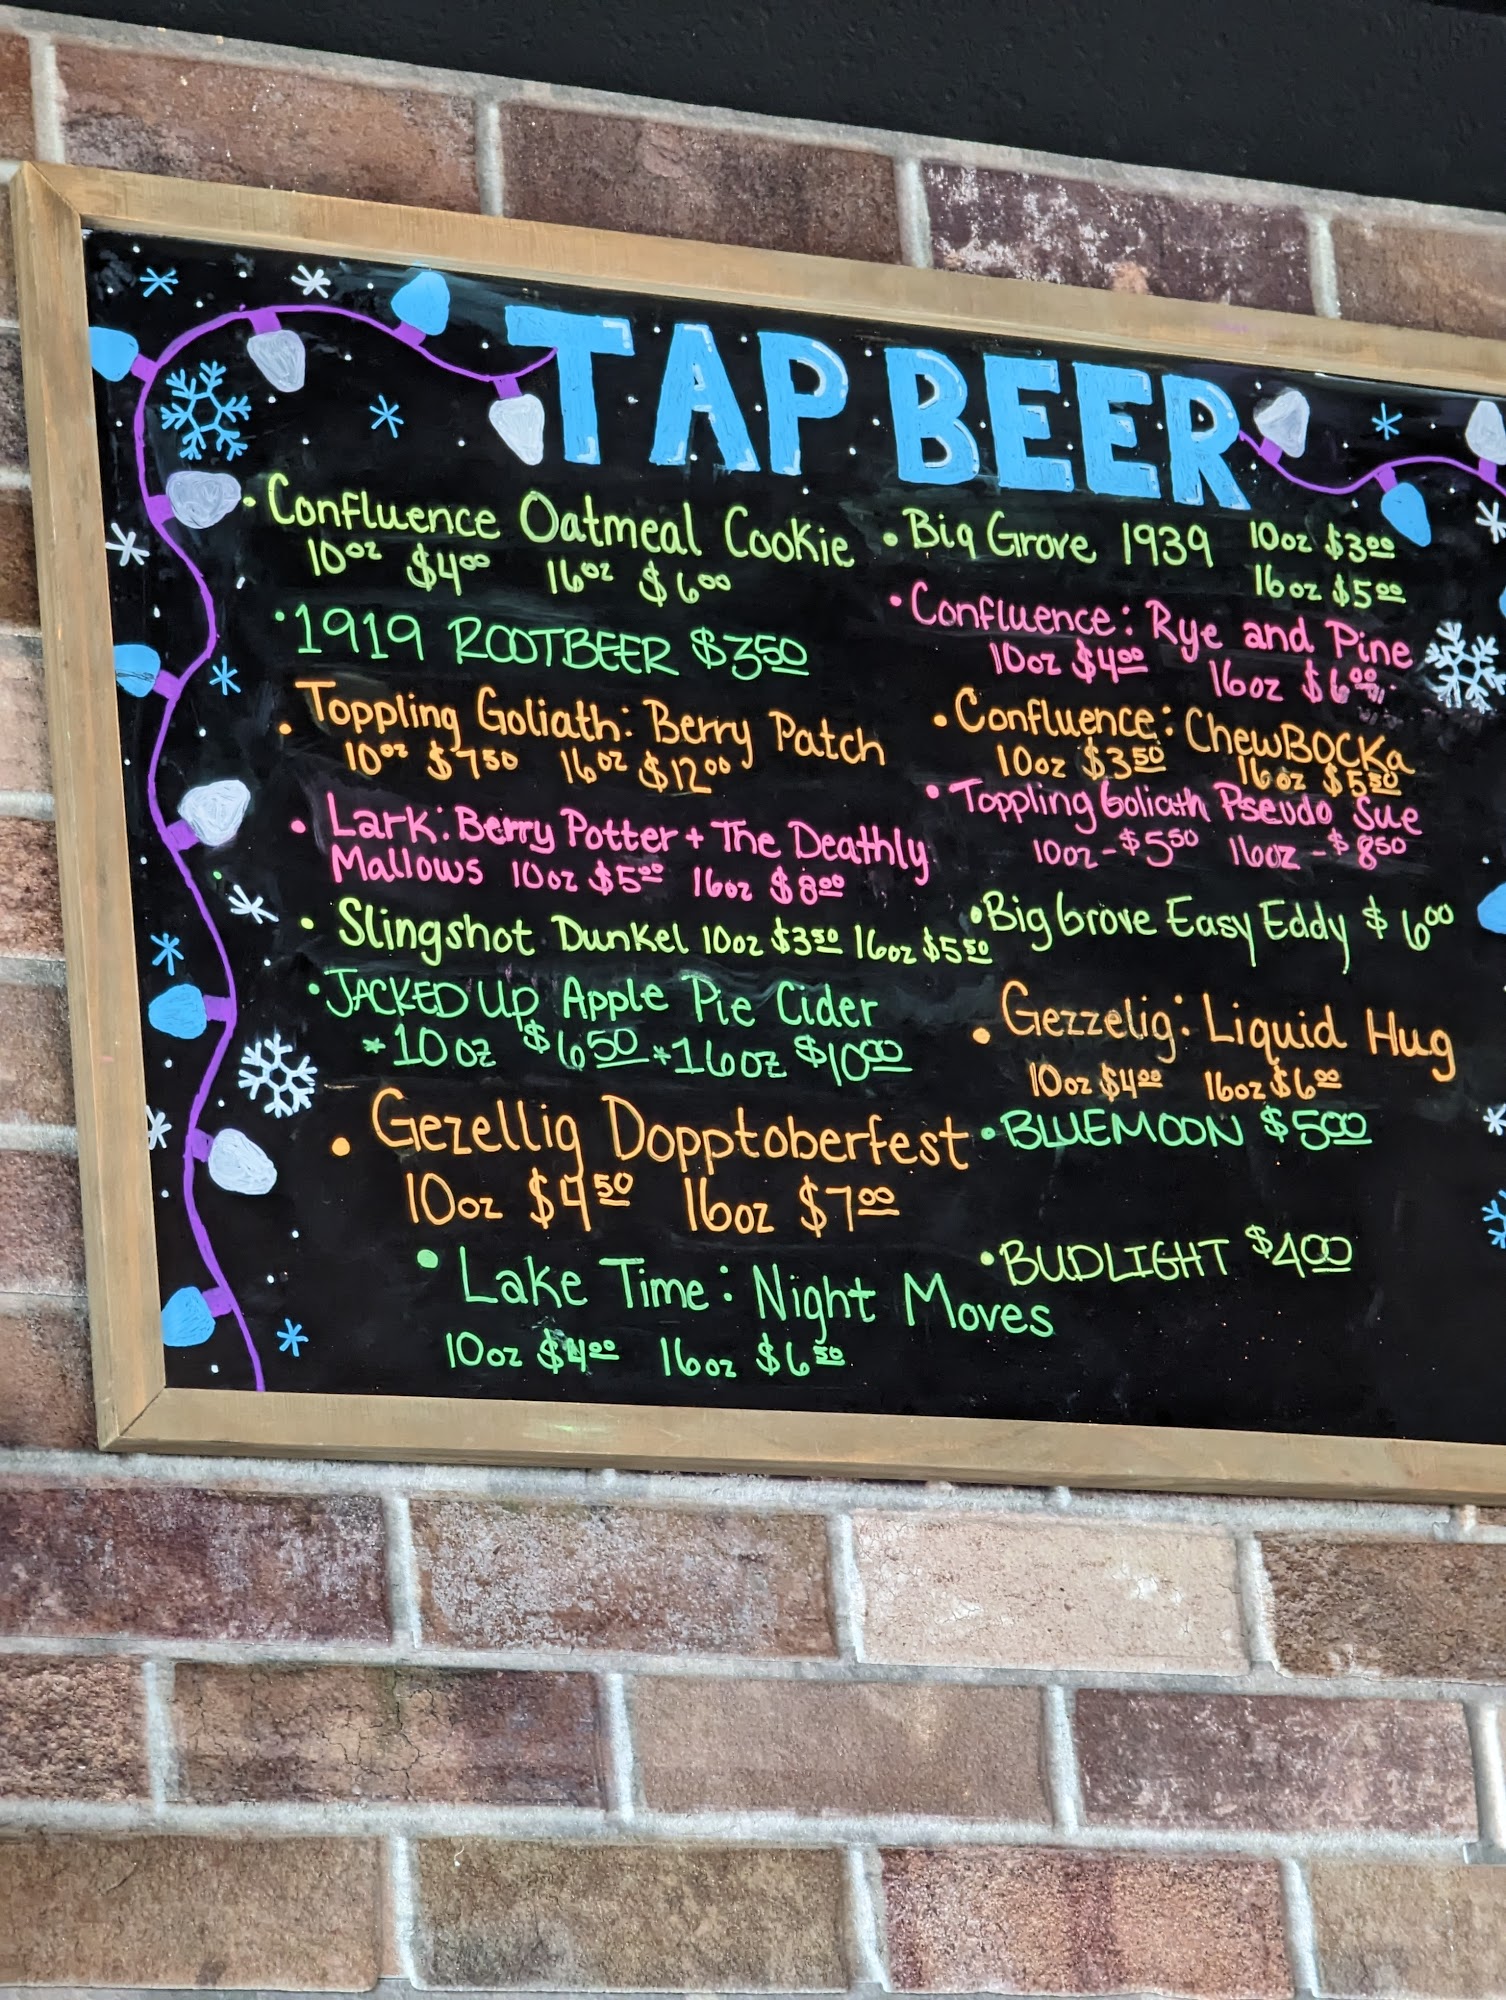 TAP BEER
• Confluence Oatmeal Cookie
10oz $400 16oz $600
• 1919 ROOTBEER $350
• Toppling Goliath: Berry Patch
10oz $750 16oz $1200
• Lark: Berry Potter + The Deathly
Mallows 10oz $500 16oz $800
• Slingshot Dunkel 10oz $350 16oz $550
• JACKED UP Apple Pie Cider
* 10oz $650 * 16oz $1000
• Gezellig Dopptoberfest
10oz $450 16oz $700
• Lake Time: Night Moves
10oz $400 16oz $650
• Big Grove 1939 10oz $300
16oz $500
• Confluence: Rye and Pine
10oz $400 16oz $600
• Confluence: ChewBOCKa
10oz $350 16oz $550
• Toppling Goliath Pseudo Sue
10oz - $550 16oz - $850
• Big Grove Easy Eddy $600
• Gezzelig: Liquid Hug
10oz $400 16oz $600
• BLUEMOON $500
• BUDLIGHT $400